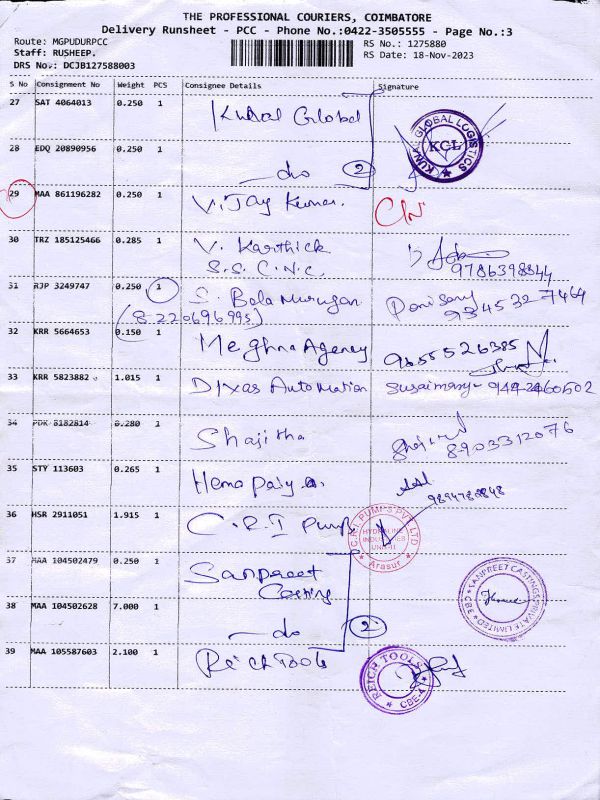 THE PROFESSIONAL COURIERS, COIMBATORE
Delivery Runsheet - PCC - Phone No.:0422-3505555 - Page No.:3
Route: MGPUDURPCC
RS No.: 1275880
Staff: RUSHEEP.
RS Date: 18-Nov-2023
DRS No.: DCJB127588003
S No Consignment No Weight PCS Consignee Details Signature
27 SAT 4064013 0.250 1 Kunal Global
KUNAL GLOBAL LOGISTICS
KGL
28 EDQ 20890956 0.250 1 do 2
29 MAA 861196282 0.250 1 Vijay Kumar.
30 TRZ 185125466 0.285 1 V. Karthick
S.S.C.N.C. 9786398844
31 RJP 3249747 0.250 1 S. Bala Murugan
(8220696995)
32 KRR 5664653 0.150 1 Meghna Agency
33 KRR 5823882 1.015 1 Dixas Automation Susaimary
34 PDK 8182814 0.280 1 Shajitha 8903312076
35 STY 113603 0.265 1 Hema
36 HSR 2911051 1.915 1 C.R.I Pumps
C.R.I. PUMPS PVT LTD
UNIT-II
Arasur
37 MAA 104502479 0.250 1 Sanpreet
Casting
SANPREET CASTINGS PRIVATE LIMITED CBE
38 MAA 104502628 7.000 1 do 2
39 MAA 105587603 2.100 1 Reich Tools
REICH TOOLS
CBE-4